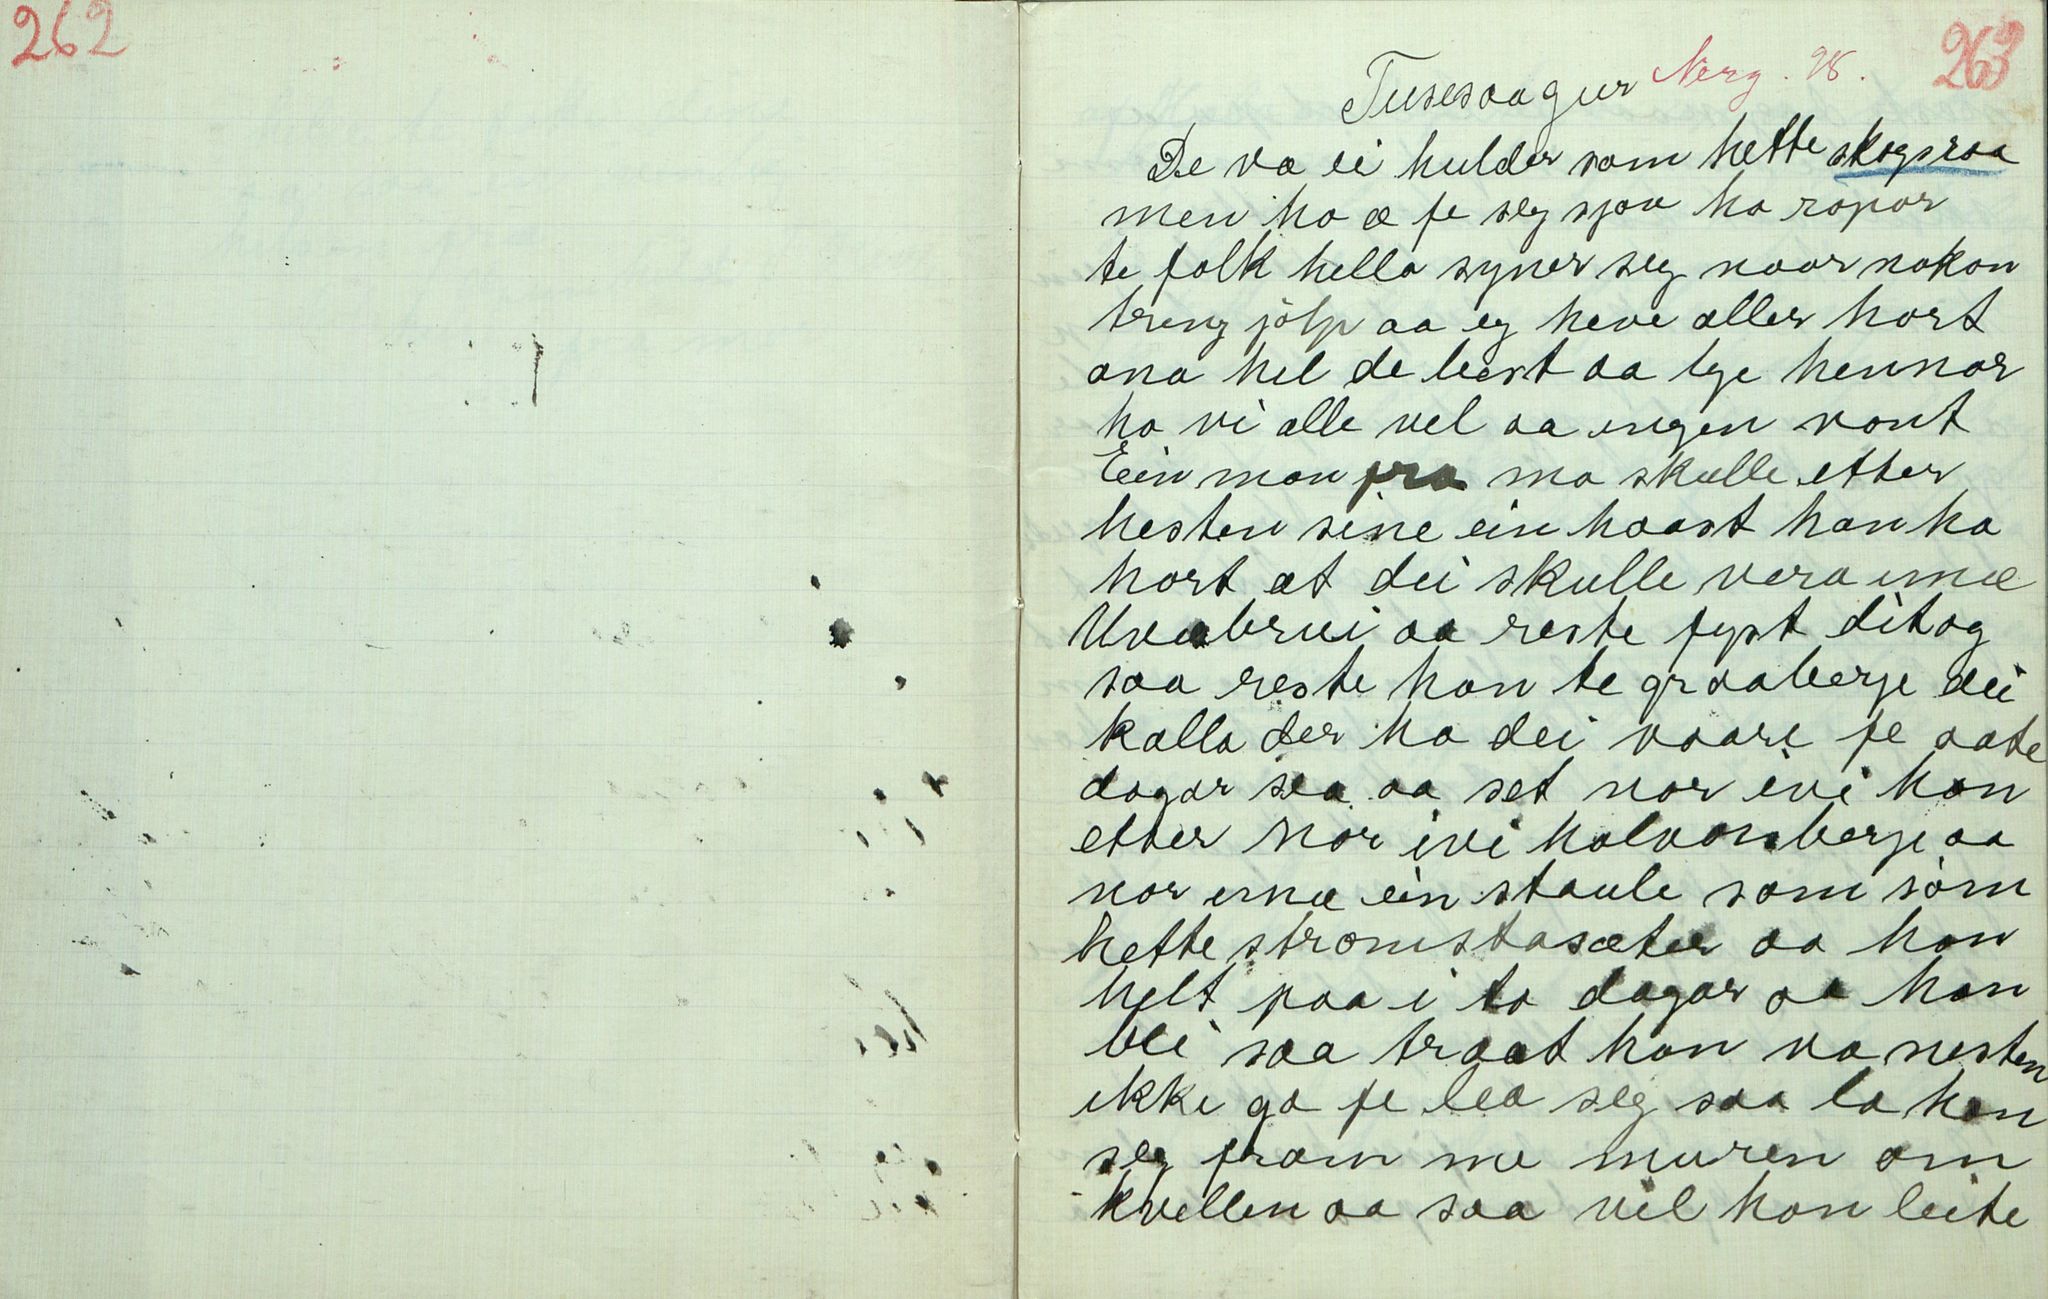 262
263
Tusesaagur Nerg. 98.
De va ei hulder som hette skogsraa
men ho æ fe seg sjøv ho ropar
te folk hella syner seg naar nokon
treng jólp aa eg heve aller hort
ana hel de best aa lye hennar
ho vi alle vel aa engen vont
Ein mon fra mo skulle etter
hesten sine ein haast han ha
hort at dei skulle vera unæ
Uvæbrui aa reste fyst ditog
saa reste han te graaberje dei
kalla der ha dei vaare fe aate
dagar sea aa set nor ivi han
etter nor ivi halvorsberje aa
nor unæ ein staule som som
hette stromstasæter aa han
helt paa i to dagar aa han
blei saa traat han va nesten
ikke go fe lea seg saa la han
seg fram me muren om
kvellen aa saa vil han leite